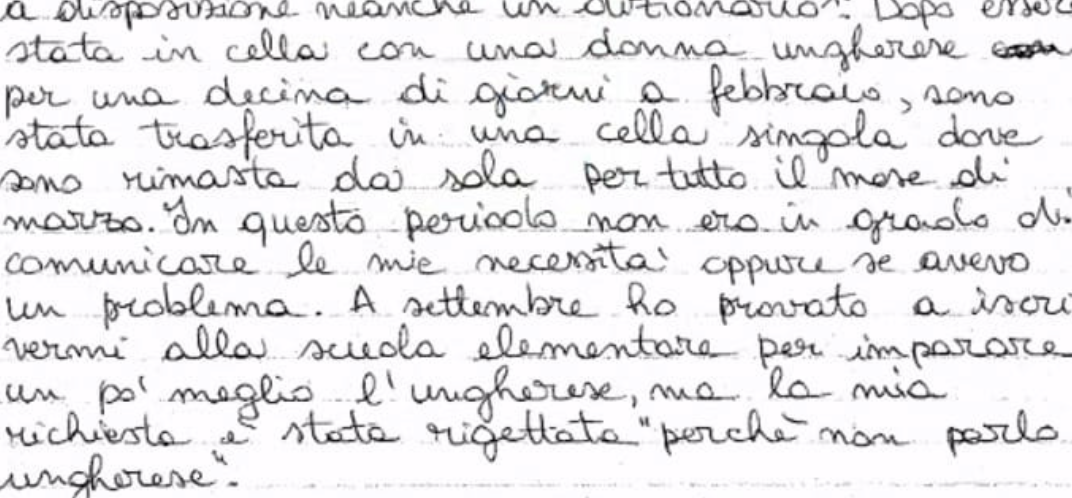 a disposizione neanche un dizionario. Dopo essere
stata in cella con una donna ungherese
per una decina di giorni a febbraio, sono
stata trasferita in una cella singola dove
sono rimasta da sola per tutto il mese di
marzo. In questo periodo non ero in grado di
comunicare le mie necessita' oppure se avevo
un problema. A settembre ho provato a iscri
vermi alla scuola elementare per imparare
un po' meglio l'ungherese, ma la mia
richiesta è stata rigettata "perchè non parlo
ungherese".